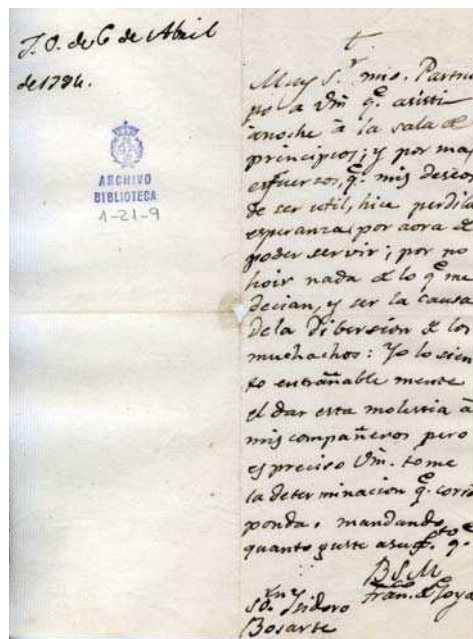 J. O. de 6 de Abril
de 1794.
ARCHIVO
BIBLIOTECA
1-21-9
Muy S.r mio. Partici
po a Vm q.e asisti
anoche à la sala de
principios; y por mas
esfuerzos, q.e mis deseos
de ser util, hice perdi la
esperanza, por aora de
poder servir; por no
hoir nada de lo q.e me
decian, y ser la causa
de la dibersion de los
muchachos: Yo lo sien
to entrañable mente
el dar esta molestia à
mis compañeros pero
es preciso Vm. tome
la determinacion q.e corres
ponda, mandando
quanto guste a su q.e
B S M
Fran.co de Goya
S.or D.n Isidoro
Bosarte